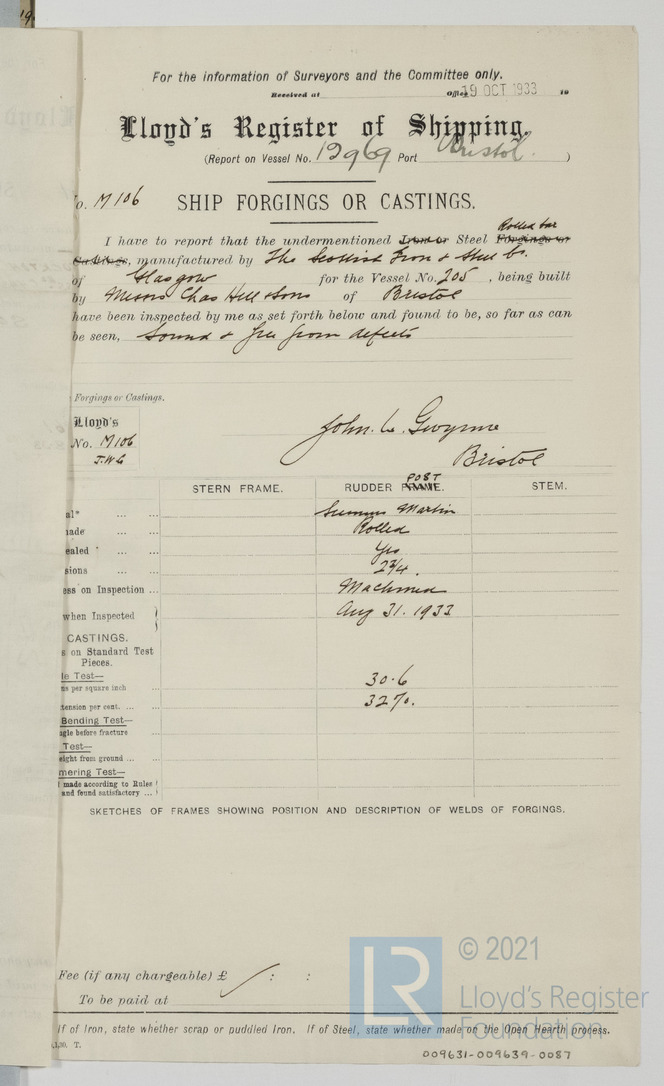 19
For the information of Surveyors and the Committee only.
Received at Office 19 OCT 1933 19
Lloyd's Register of Shipping.
(Report on Vessel No. 12969 Port Bristol. )
o. M106 SHIP FORGINGS OR CASTINGS.
Rolled bar
I have to report that the undermentioned Iron or Steel Forgings or
Castings, manufactured by The Scottish Iron & Steel Co.
of Glasgow for the Vessel No. 205, being built
by Messrs Chas Hill & Sons of Bristol
have been inspected by me as set forth below and found to be, so far as can
be seen, Sound & free from defects
Forgings or Castings.
Lloyd's
No. M106
J.W.G
John. W. Gwynne
Bristol
POST
STERN FRAME. RUDDER FRAME. STEM.
al* ... ... Siemens Martin
made ... ... Rolled
ealed * ... ... Yes
sions ... ... 2¾.
ess on Inspection ... Machined
when Inspected Aug 31. 1933
CASTINGS.
s on Standard Test
Pieces.
le Test—
ns per square inch ... 30.6
tension per cent. ... ... 32%.
Bending Test—
ngle before fracture ...
Test—
eight from ground ... ...
mering Test—
made according to Rules
and found satisfactory ...
SKETCHES OF FRAMES SHOWING POSITION AND DESCRIPTION OF WELDS OF FORGINGS.
Fee (if any chargeable) £ : :
To be paid at
If of Iron, state whether scrap or puddled Iron. If of Steel, state whether made on the Open Hearth process.
,1,30. T.
LR © 2021
Lloyd's Register
Foundation
009631-009639-0087